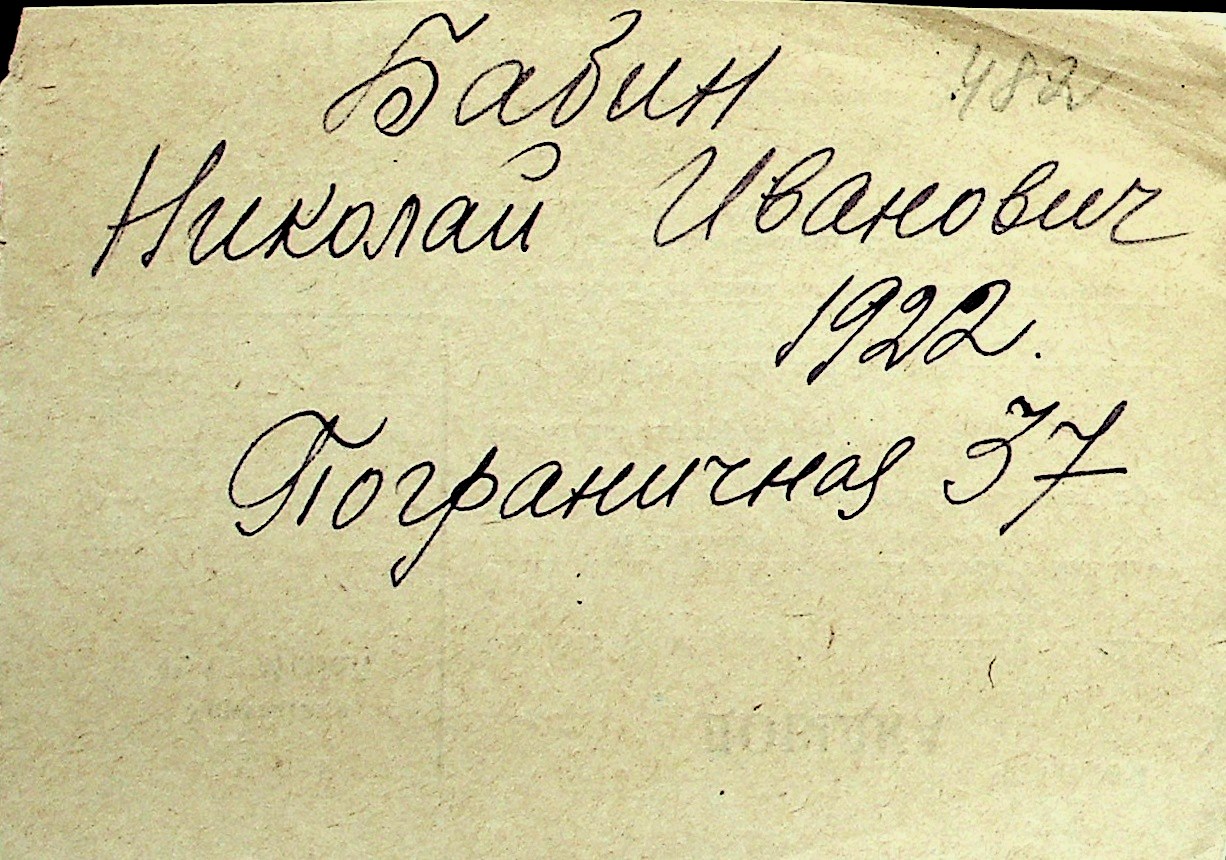 Бабин 482
Николай Иванович
1922.
Пограничная 37